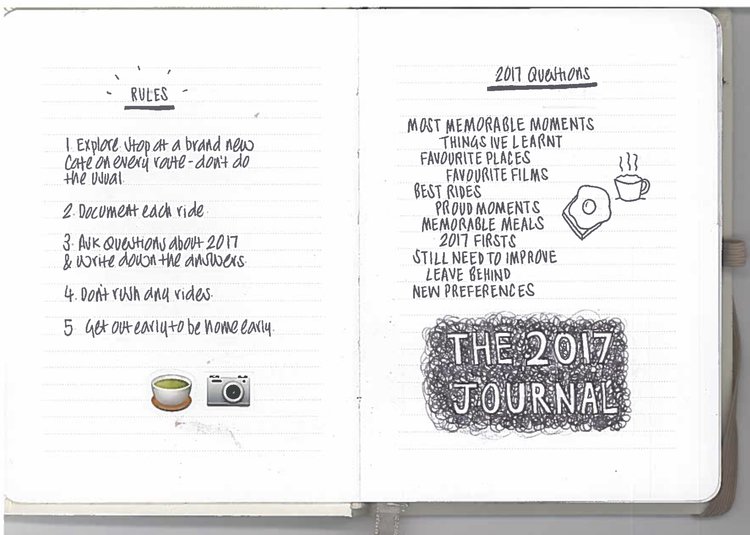 RULES
1 Explore stop at a brand new
cafe on every route - don't do
the usual
2. Document each ride.
3. Ask Questions about 2017
& write down the answers.
4. Don't rush any rides.
5 Get out early to be home early.
2017 Questions
MOST MEMORABLE MOMENTS
THINGS IVE LEARNT
FAVOURITE PLACES
FAVOURITE FILMS
BEST RIDES
PROUD MOMENTS
MEMORABLE MEALS
2017 FIRSTS
STILL NEED TO IMPROVE
LEAVE BEHIND
NEW PREFERENCES
THE 2017
JOURNAL